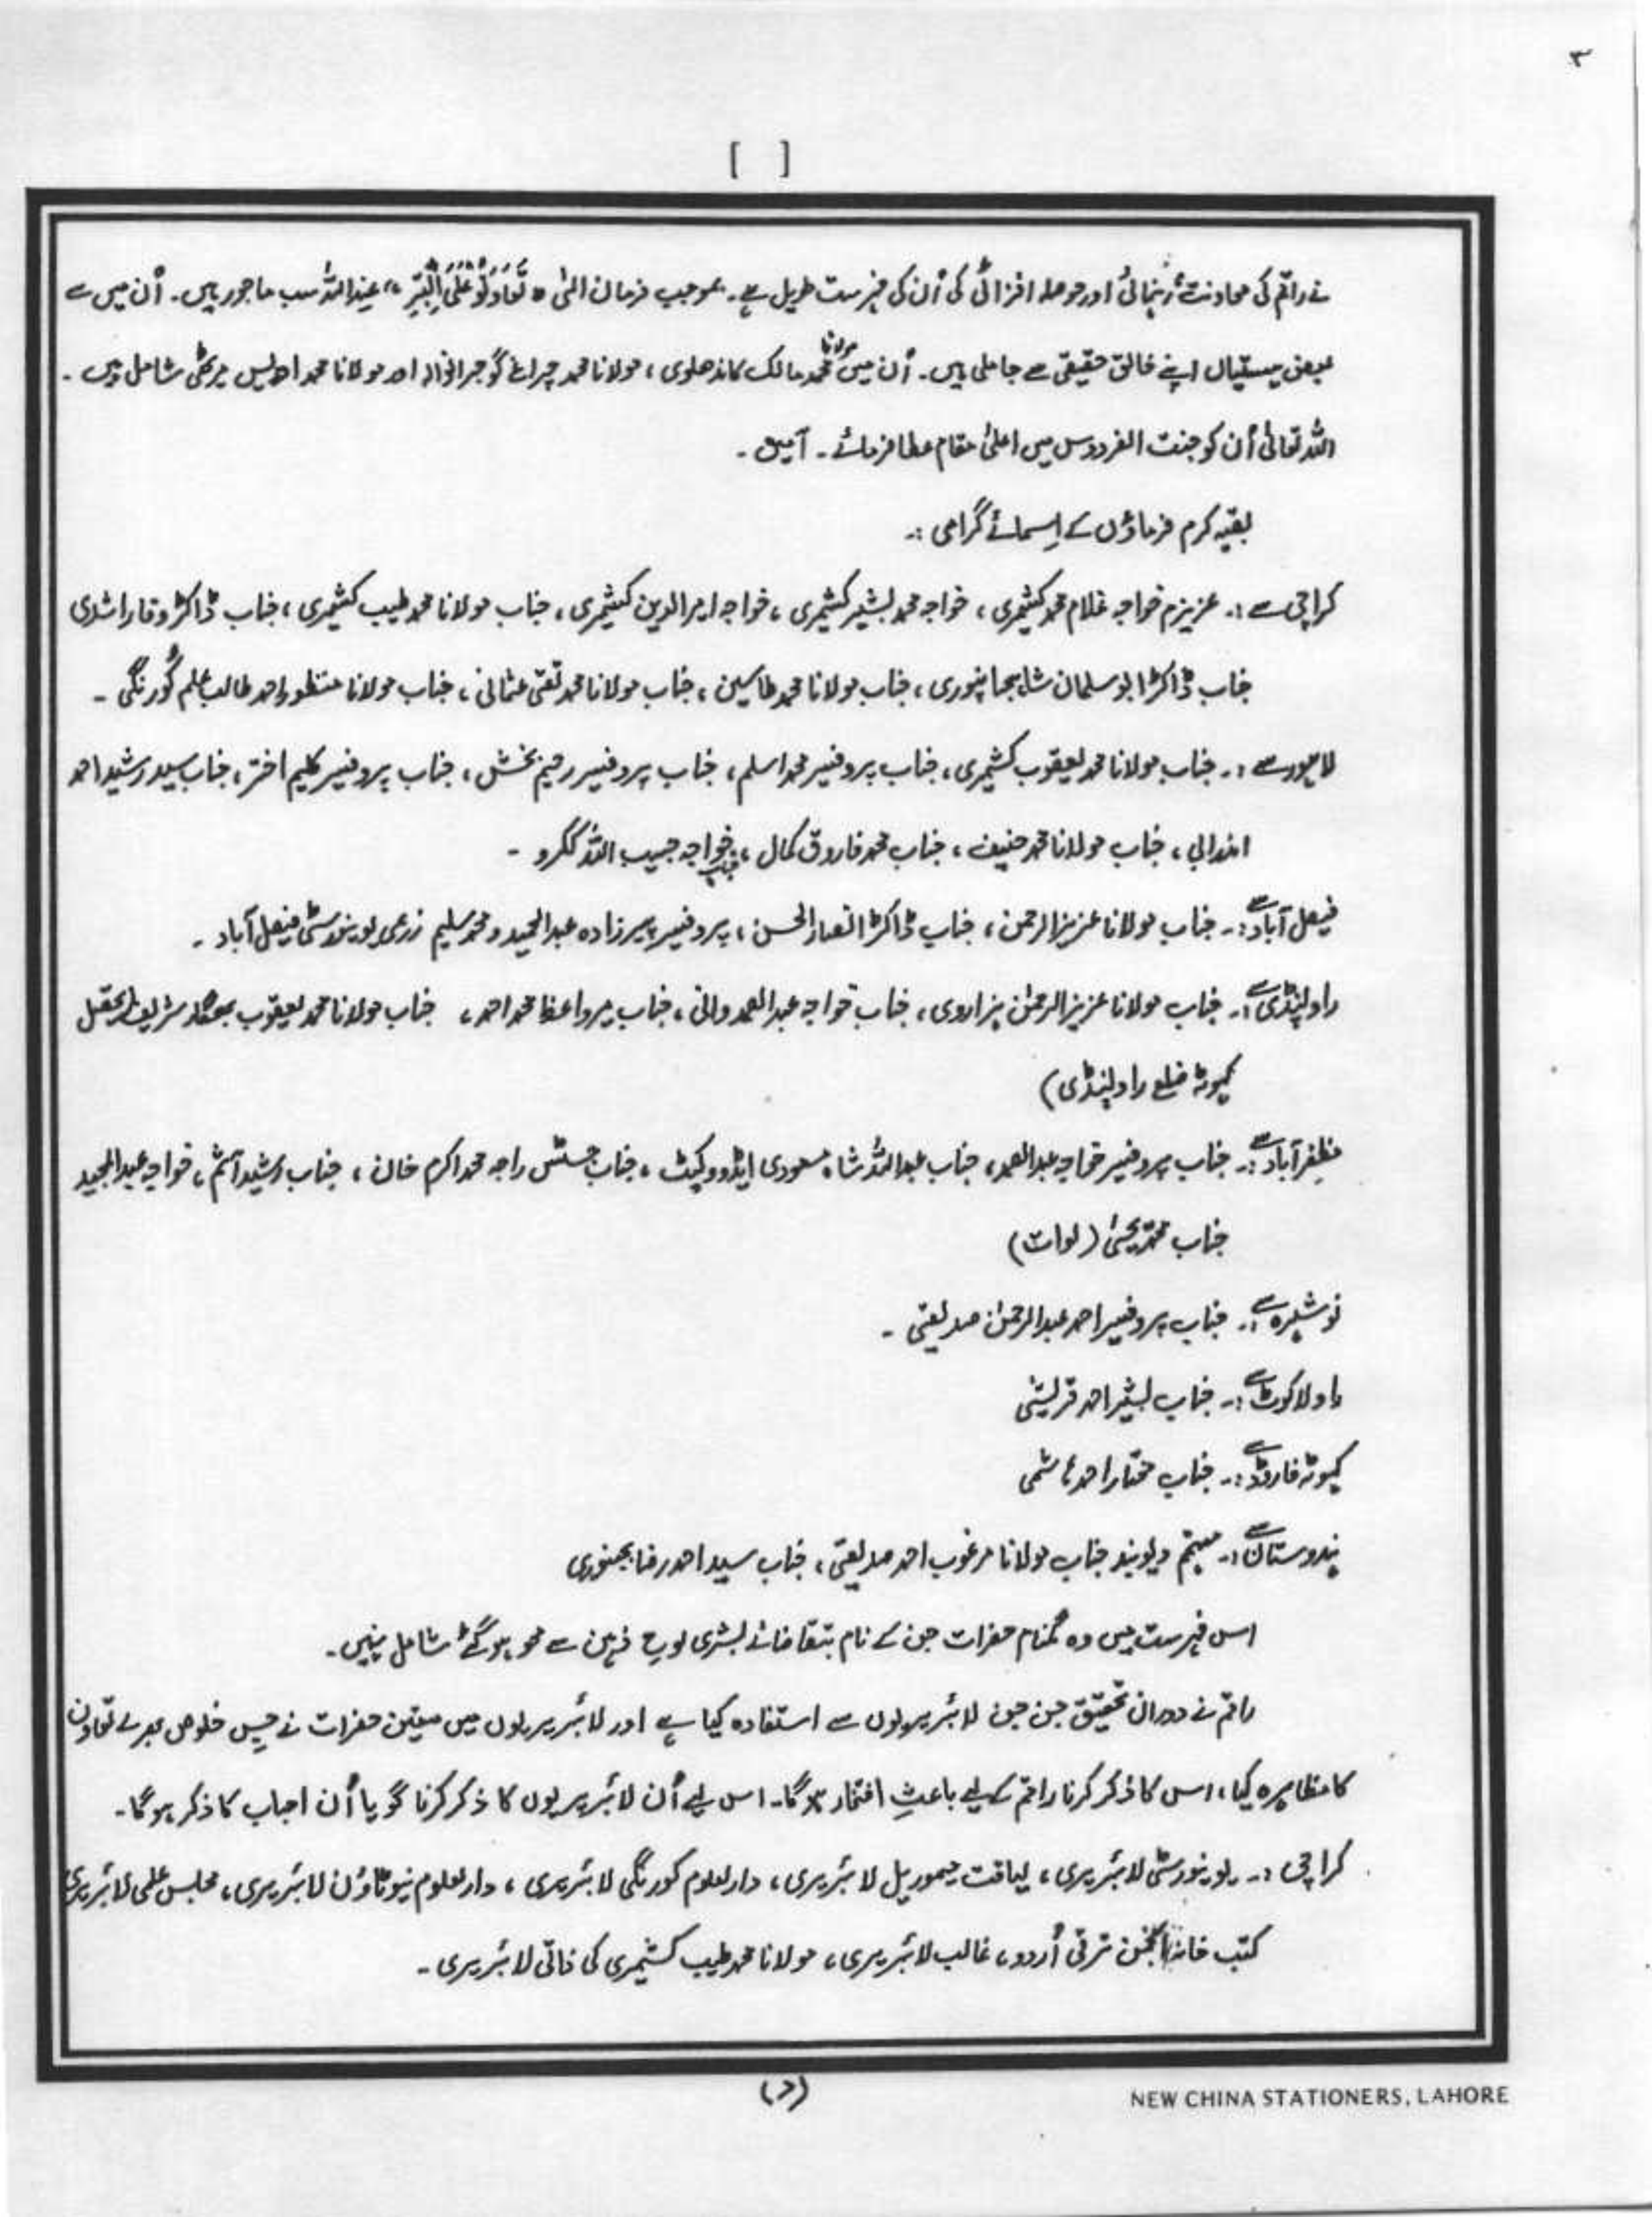 ۳
[ ]
نے راقم کی معاونت، رہنمائی اور حوصلہ افزائی کی اُن کی فہرست طویل ہے۔ بموجب فرمان الٰہی " تَعَاوَنُوْا عَلَی الْبِرِّ " عند اللہ سب ماجور ہیں۔ اُن میں سے
بعض ہستیاں اپنے خالق حقیقی سے جا ملی ہیں۔ اُن میں مولانا محمد مالک کاندھلوی، مولانا محمد چراغ گوجرانوالہ اور مولانا محمد ادریس میرٹھی شامل ہیں۔
اللہ تعالیٰ اُن کو جنت الفردوس میں اعلیٰ مقام عطا فرمائے۔ آمین۔
بقیہ کرم فرماؤں کے اسمائے گرامی :۔
کراچی سے :۔ عزیزم خواجہ غلام محمد کشمیری، خواجہ محمد بشیر کشمیری، خواجہ امیر الدین کشمیری، جناب مولانا محمد طیب کشمیری، جناب ڈاکٹر وفا راشدی
جناب ڈاکٹر ابو سلمان شاہجہانپوری، جناب مولانا محمد طاسین، جناب مولانا محمد تقی عثمانی، جناب مولانا منظور احمد طالب علم کورنگی۔
لاہور سے :۔ جناب مولانا محمد یعقوب کشمیری، جناب پروفیسر محمد اسلم، جناب پروفیسر رحیم بخش، جناب پروفیسر کلیم اختر، جناب سید رشید احمد
اندرابی، جناب مولانا محمد حنیف، جناب محمد فاروق کمال، جناب خواجہ حبیب اللہ ککرو۔
فیصل آباد سے :۔ جناب مولانا عزیز الرحمن، جناب ڈاکٹر انصار الحسن، پروفیسر پیرزادہ عبد الحمید و محمد سلیم زرعی یونیورسٹی فیصل آباد۔
راولپنڈی سے :۔ جناب مولانا عزیز الرحمٰن ہزاروی، جناب خواجہ عبد الصمد وانی، جناب میر واعظ محمد احمد، جناب مولانا محمد یعقوب شریف (تحصیل
کہوٹہ ضلع راولپنڈی)
مظفر آباد سے :۔ جناب پروفیسر خواجہ عبد الصمد، جناب عبد اللہ شاہ مسعودی ایڈووکیٹ، جناب جسٹس راجہ محمد اکرم خان، جناب رشید، خواجہ عبد المجید
جناب محمد یحییٰ (لوات)
نوشہرہ سے :۔ جناب پروفیسر احمد عبد الرحمٰن صدیقی۔
راولاکوٹ سے :۔ جناب بشیر احمد قریشی
کہوٹہ فارورڈ سے :۔ جناب مختار احمد ہاشمی
ہندوستان سے :۔ مہتمم دیوبند جناب مولانا مرغوب احمد صدیقی، جناب سید احمد رضا بجنوری
اس فہرست میں وہ گمنام حضرات جن کے نام بتقاضائے بشری لوح ذہن سے محو ہو گئے شامل نہیں۔
راقم نے دوران تحقیق جن جن لائبریریوں سے استفادہ کیا ہے اور لائبریریوں میں معتین حضرات نے جس خلوص بھرے تعاون
کا مظاہرہ کیا، اس کا ذکر کرنا راقم کے لیے باعثِ افتخار ہوگا۔ اس لیے اُن لائبریریوں کا ذکر کرنا گویا اُن احباب کا ذکر ہوگا۔
کراچی :۔ یونیورسٹی لائبریری، لیاقت میموریل لائبریری، دارالعلوم کورنگی لائبریری، دارالعلوم نیوٹاؤن لائبریری، مجلس علمی لائبریری
کتب خانہ انجمن ترقی اُردو، غالب لائبریری، مولانا محمد طیب کشمیری کی ذاتی لائبریری۔
(د)
NEW CHINA STATIONERS, LAHORE